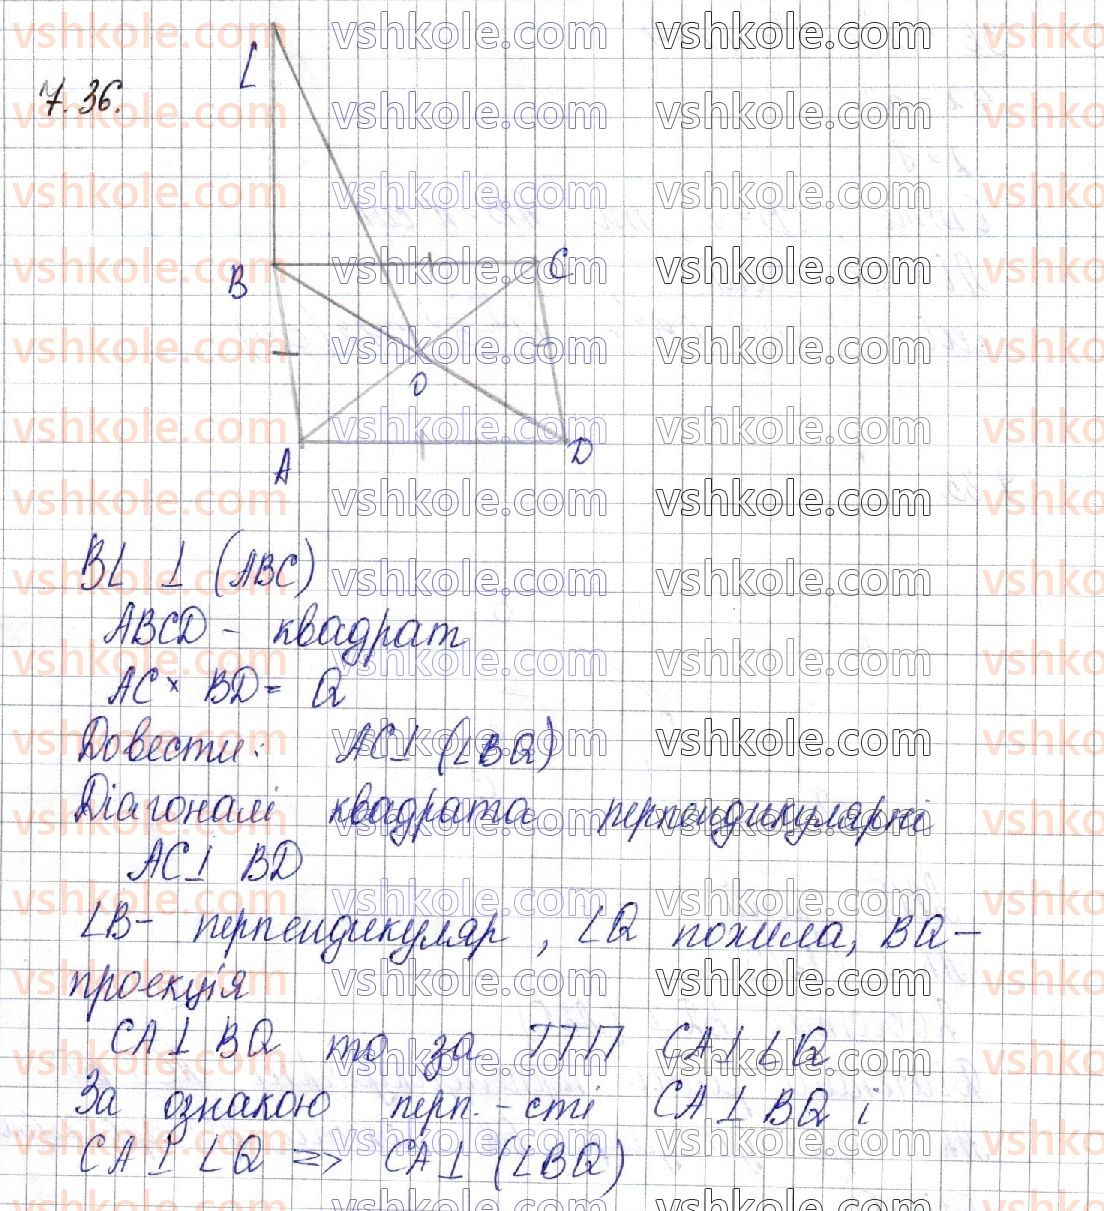 7.36.
L
B
C
O
A
D
BL ⊥ (ABC)
ABCD - квадрат
AC × BD = Q
Довести: AC ⊥ (LBQ)
Діагоналі квадрата перпендикулярні
AC ⊥ BD
LB - перпендикуляр, LQ похила, BQ -
проекція
CA ⊥ BQ то за ТТП CA ⊥ LQ
За ознакою перп.-сті CA ⊥ BQ і
CA ⊥ LQ => CA ⊥ (LBQ)
vshkole.com